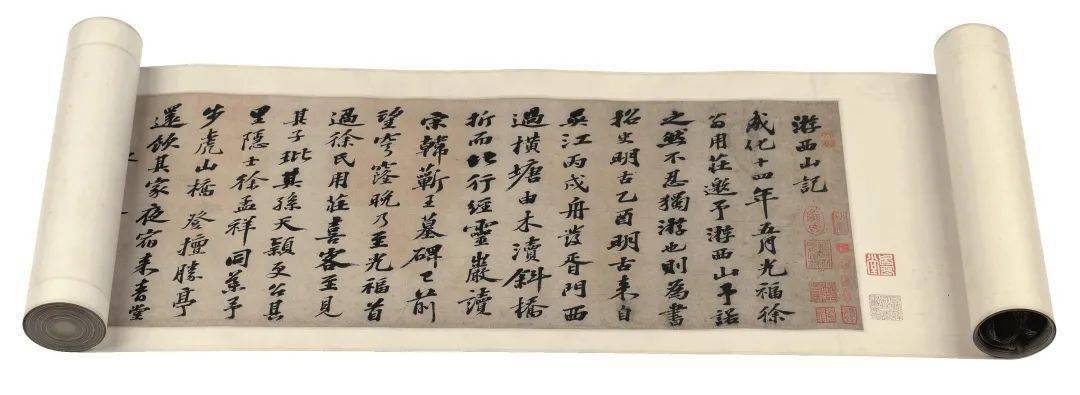 游西山記
成化十四年五月光福徐
翁用莊邀予游西山予諾
之然不忍獨游也則為書
招史明古乙酉明古来自
吳江丙戌舟發胥門西
過橫塘由木瀆斜橋
折而北行經靈巖讀
宋韓蘄王墓碑已前
望穹窿晚乃至光福首
過徐氏用莊喜客至見
其子玭其孫天穎其
里隱士徐孟祥同予
步虎山橋登擅勝亭
還飲其家夜宿来青堂